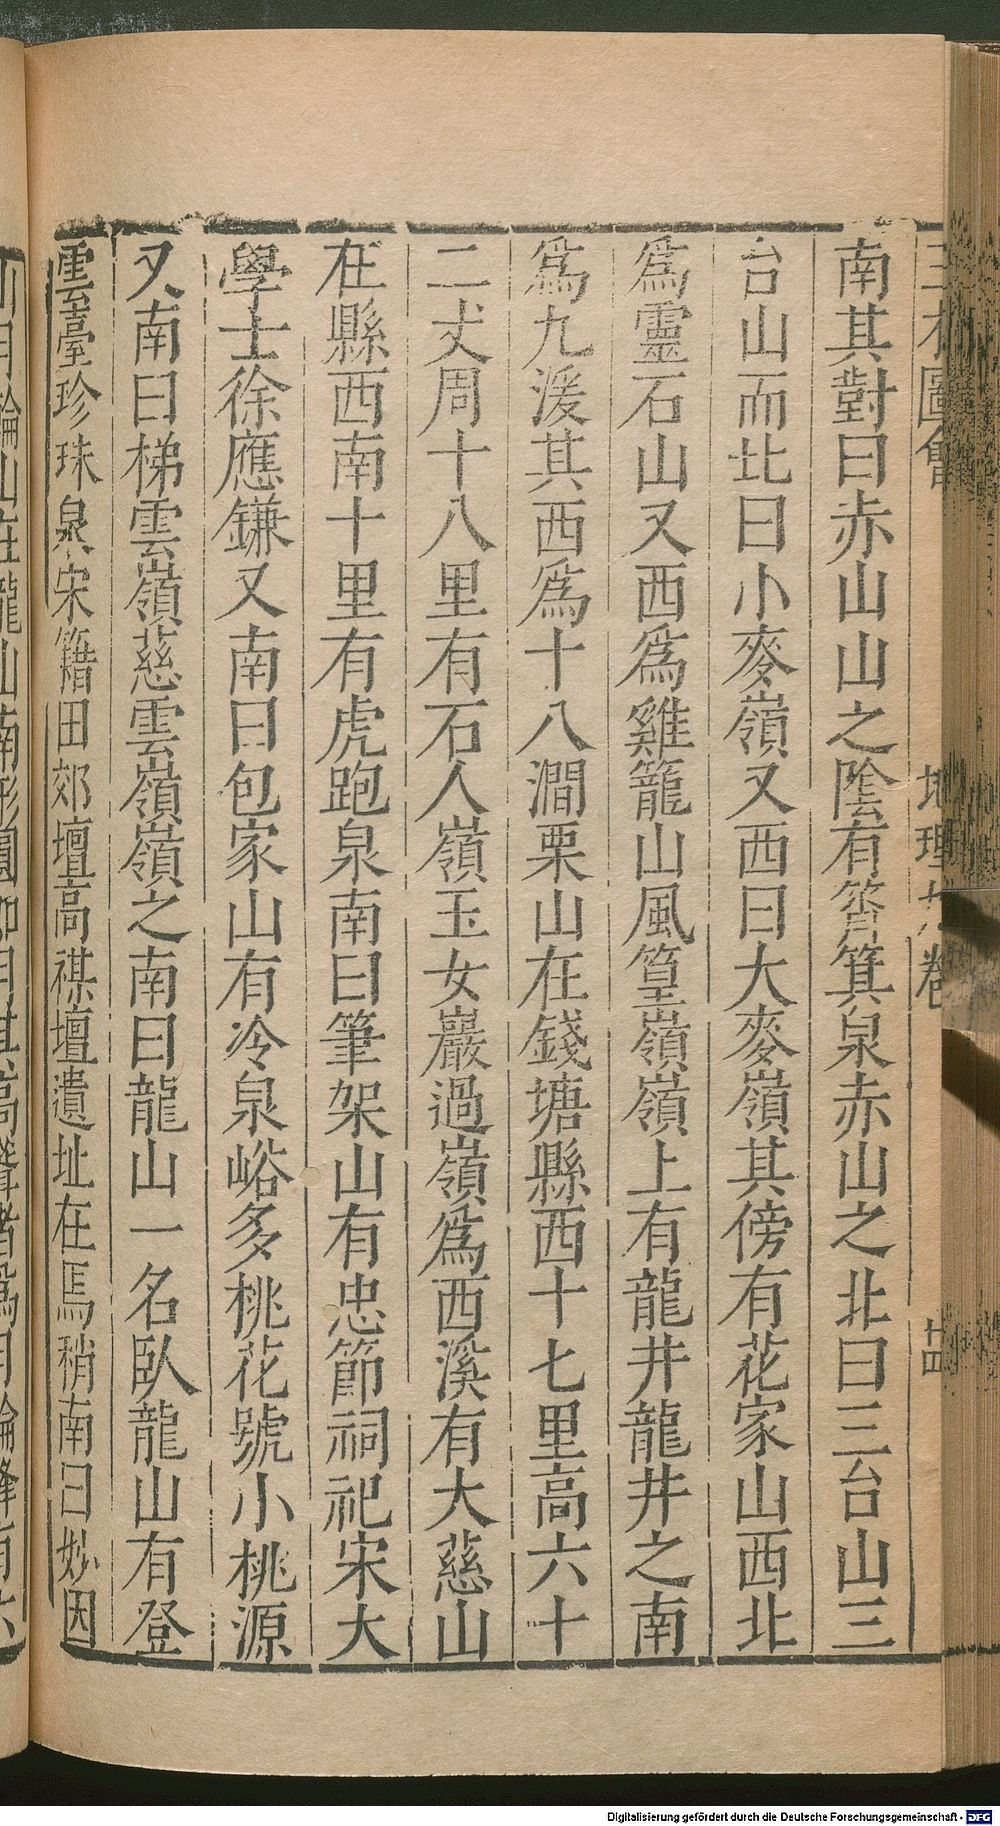 三才圖會 地理九卷 廿四
南其對曰赤山山之陰有筲箕泉赤山之北曰三台山三
台山而北曰小麥嶺又西曰大麥嶺其傍有花家山西北
爲靈石山又西爲雞籠山風篁嶺嶺上有龍井龍井之南
爲九湲其西爲十八澗栗山在錢塘縣西十七里高六十
二丈周十八里有石人嶺玉女巖過嶺爲西溪有大慈山
在縣西南十里有虎跑泉南曰筆架山有忠節祠祀宋大
學士徐應鎌又南曰包家山有冷泉峪多桃花號小桃源
又南曰梯雲嶺慈雲嶺嶺之南曰龍山一名臥龍山有登
雲臺珍珠泉宋籍田郊壇高禖壇遺址在焉稍南曰妙因
山月輪山在龍山南形圓如月其高聳者爲月輪峰有六
Digitalisierung gefördert durch die Deutsche Forschungsgemeinschaft - DFG